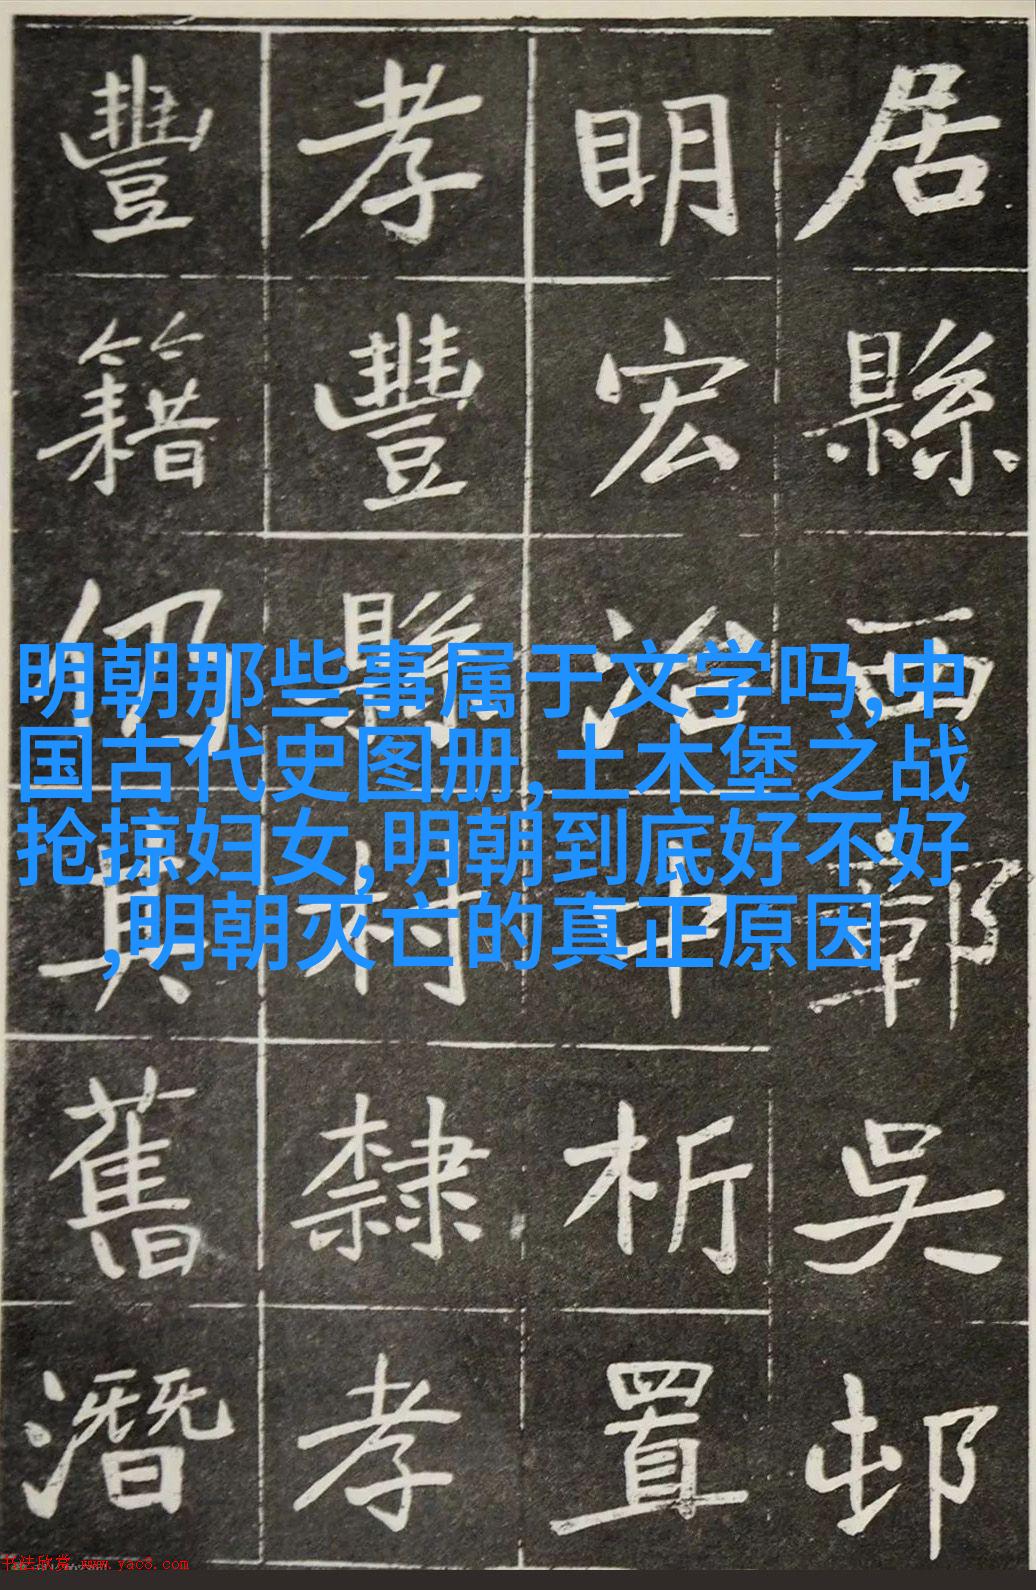 居縣西鄣吳邨
眀宏治中析置
孝豐縣村隸孝
豐籍仍其舊潛
明朝那些事属于文学吗,中
国古代史图册,土木堡之战
抢掠妇女,明朝到底好不好
,明朝灭亡的真正原因
书法欣赏 www.yac8.com